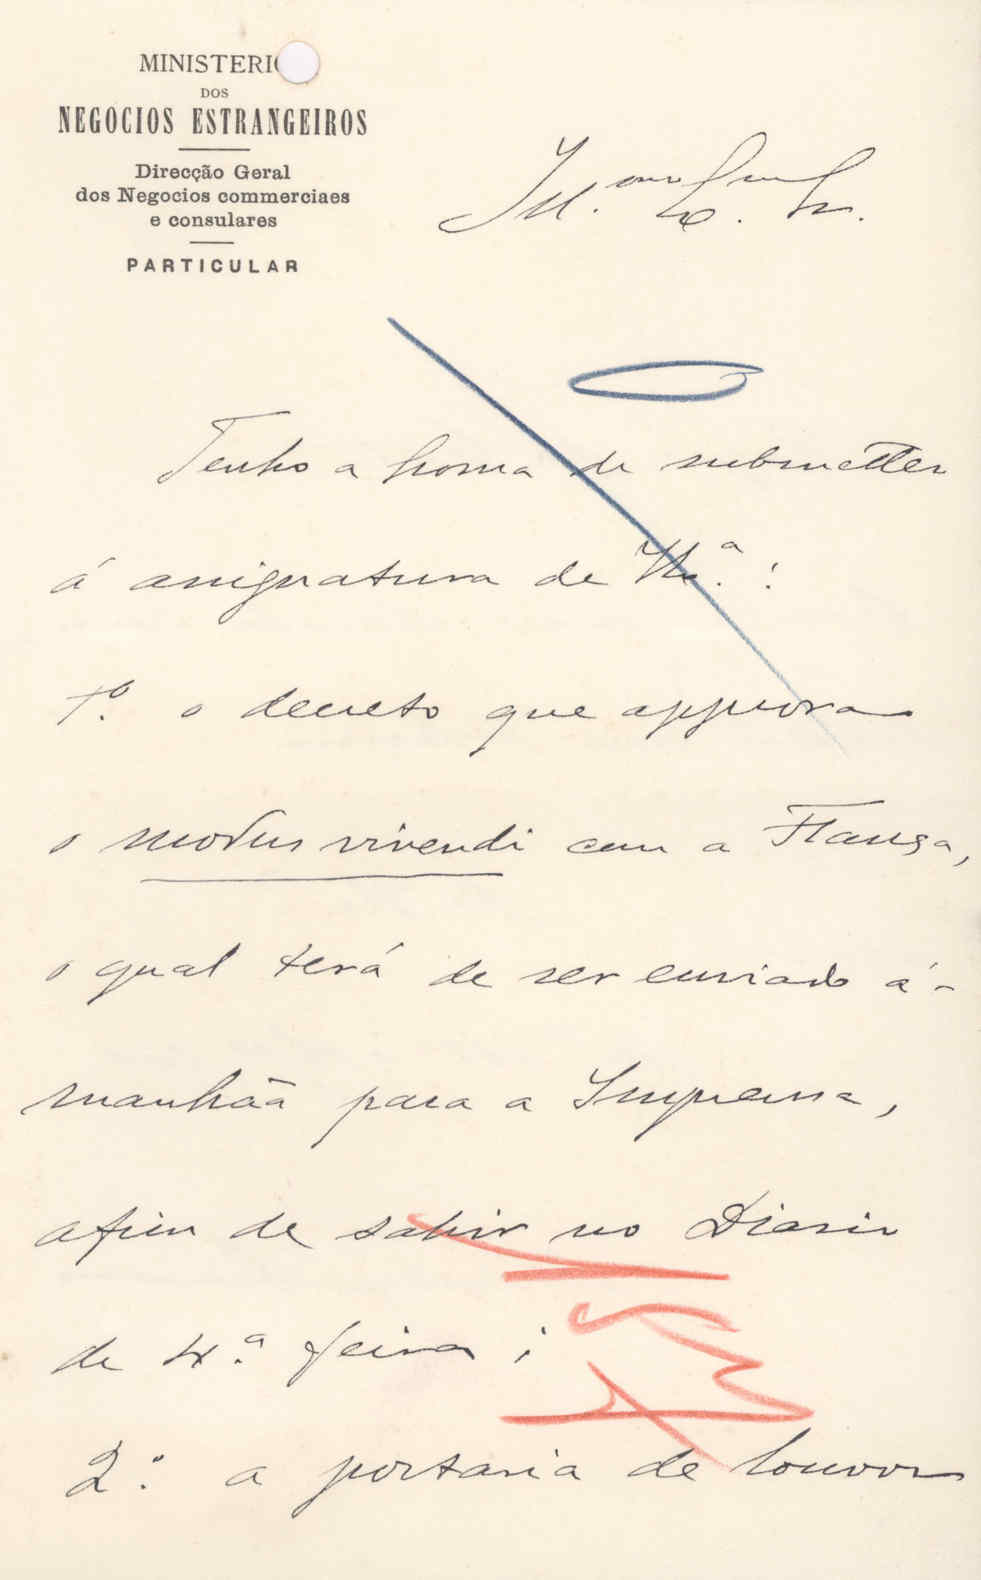 MINISTERIO
DOS
NEGOCIOS ESTRANGEIROS
Direcção Geral
dos Negocios commerciaes
e consulares
PARTICULAR
Ill.mo Exmo Sr.
Tenho a honra de submetter
á assignatura de V. Ex.a:
1.º o decreto que approva
o modus vivendi com a França,
o qual terá de ser enviado á-
manhãa para a Imprensa,
afim de sahir no Diario
de 4.ª feira;
2.º a portaria de louvor